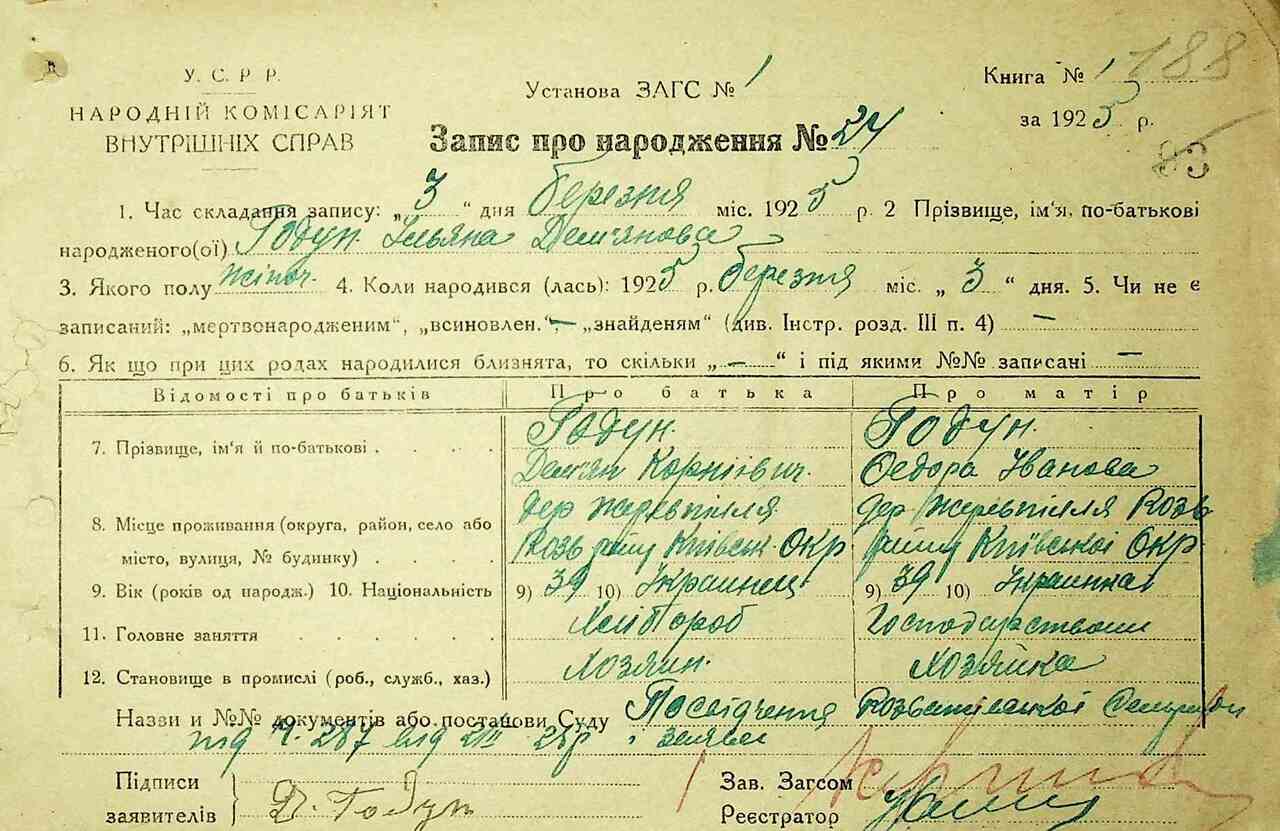 188
У. С. Р. Р.
НАРОДНІЙ КОМІСАРІЯТ
ВНУТРІШНІХ СПРАВ
Установа ЗАГС № 1
Книга № 1
за 1925 р.
Запис про народження № 24
83
1. Час складання запису: „ 3 “ дня березня міс. 1925 р. 2 Прізвище, ім'я, по-батькові
народженого(ої) Годун Ульяна Дем'янова
3. Якого полу жіноч. 4. Коли народився (лась): 1925 р. березня міс. „ 3 “ дня. 5. Чи не є
записаний: „мертвонародженим“, „всиновлен.“, — „знайденям“ (див. Інстр. розд. III п. 4) —
6. Як що при цих родах народилися близнята, то скільки „ — “ і під якими №№ записані —
Відомості про батьків Про батька Про матір
7. Прізвище, ім'я й по-батькові Годун Годун
Дем'ян Корнїівич Федора Іванова
8. Місце проживання (округа, район, село або дер Жеревпілля дер Жеревпілля Розв
місто, вулиця, № будинку) Розв району Київськ. Окр. району Київської Окр
9. Вік (років од народж.) 10. Національність 9) 39 10) Украинец 9) 39 10) Украинка
11. Головне заняття Хлібороб Господарством
12. Становище в промислі (роб., служб., хаз.) Хозяин. Хозяйка
Назви и №№ документів або постанови Суду Посвідчення Розважівської
під Ч. 287 від і заява
Підписи
заявителів Д. Годун
Зав. Загсом
Реєстратор